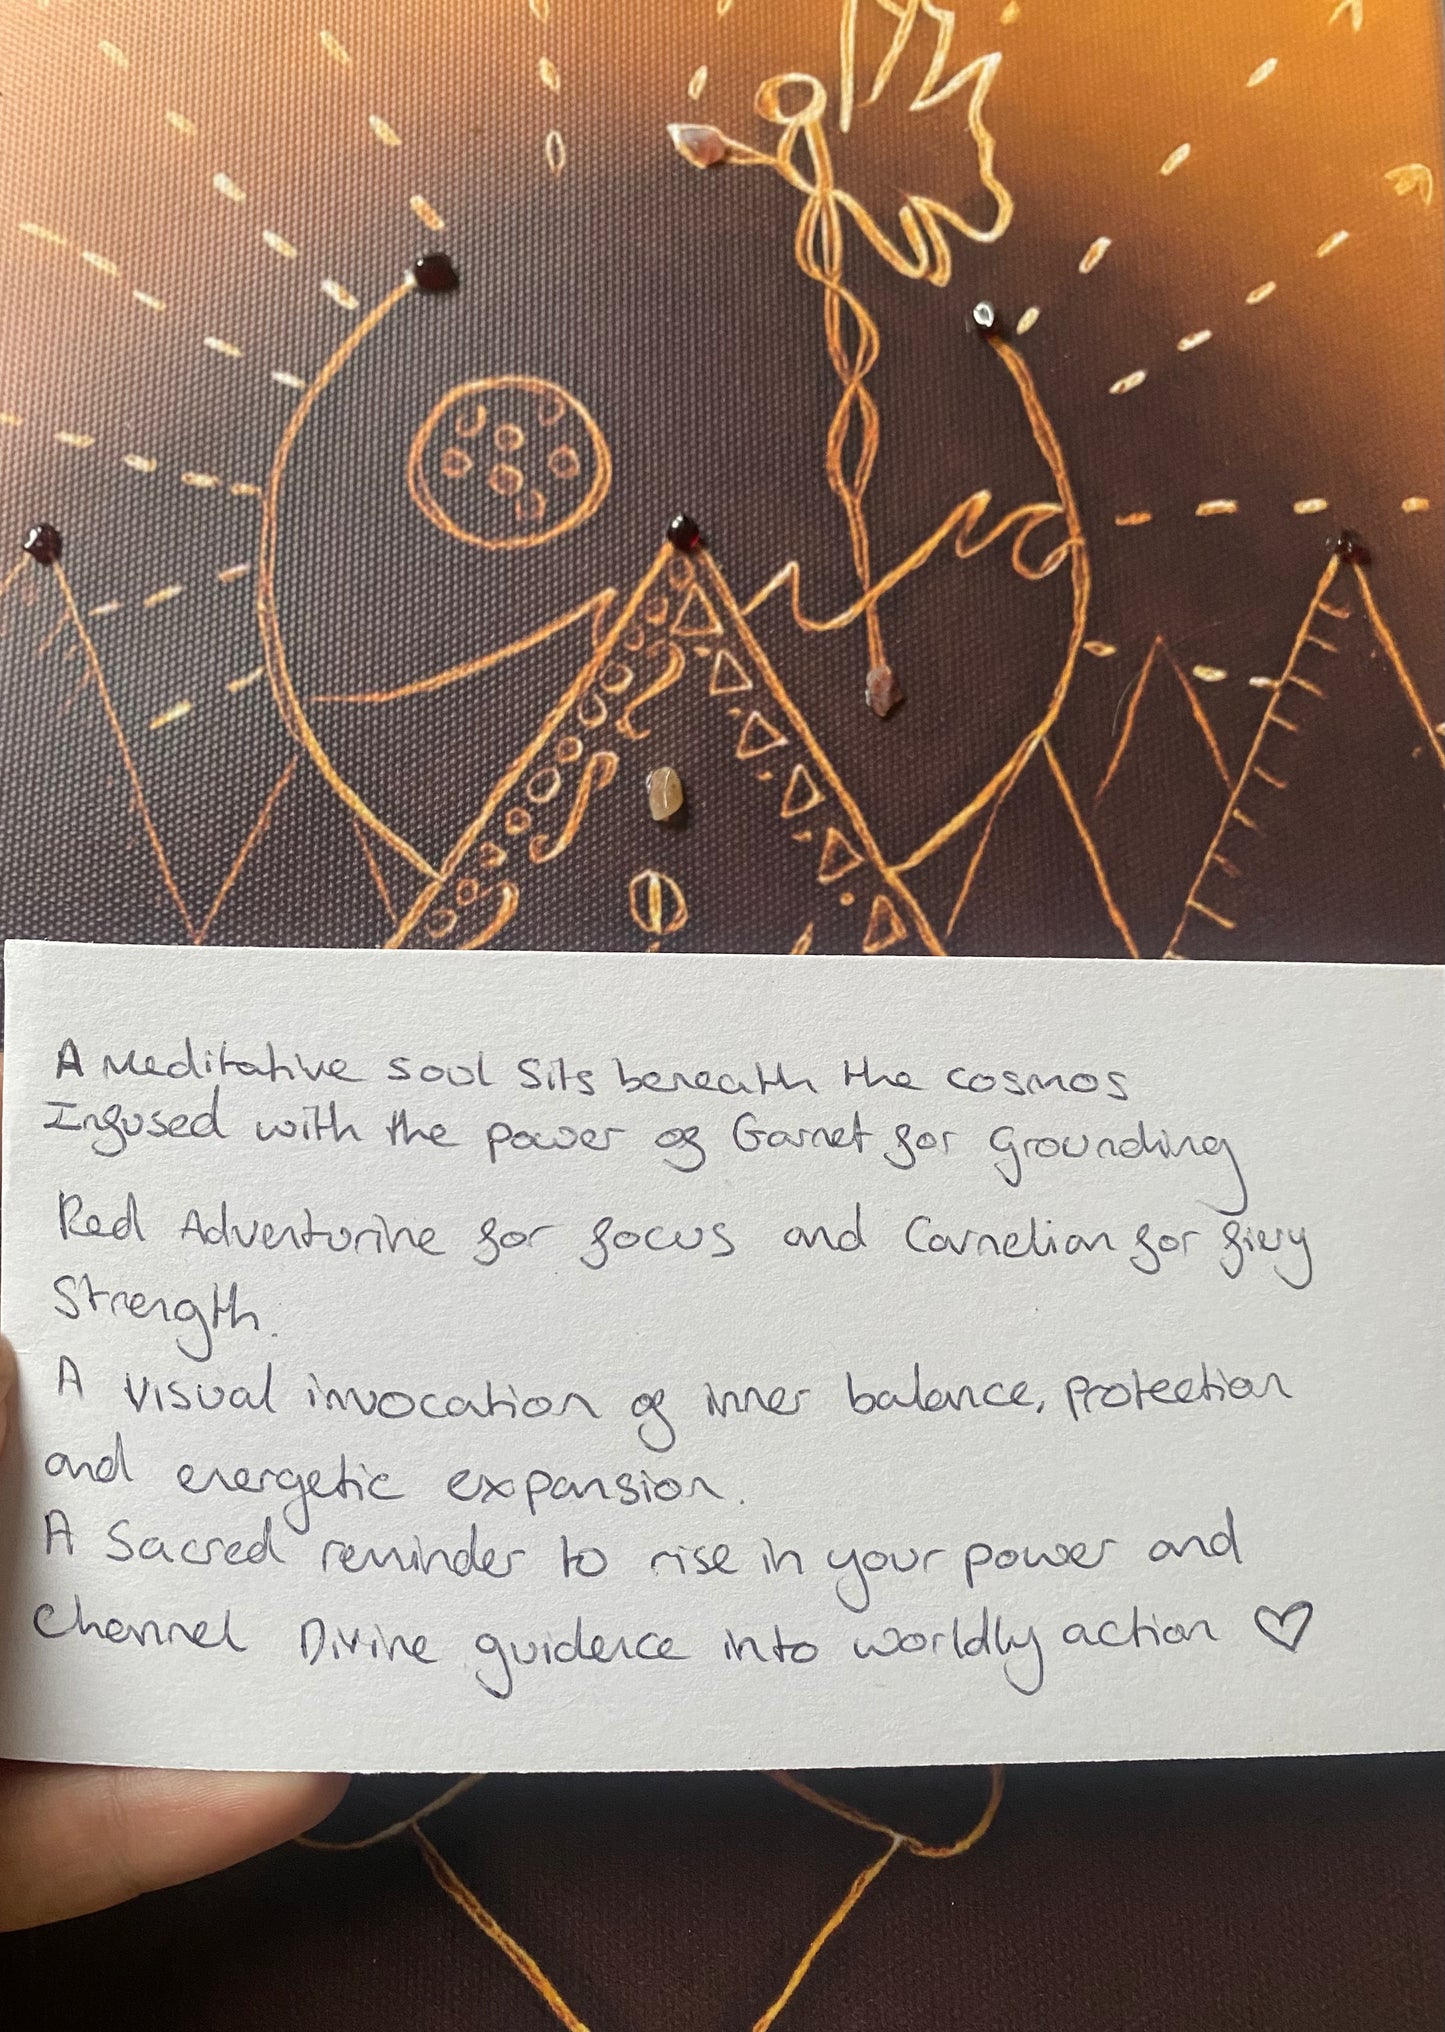 A Meditative soul Sits beneath the cosmos
Infused with the power of Garnet for Grounding
Red Adventurine for focus and Carnelian for fiery
Strength.
A visual invocation of inner balance, protection
and energetic expansion.
A Sacred reminder to rise in your power and
Channel Divine guidence into worldly action ♡